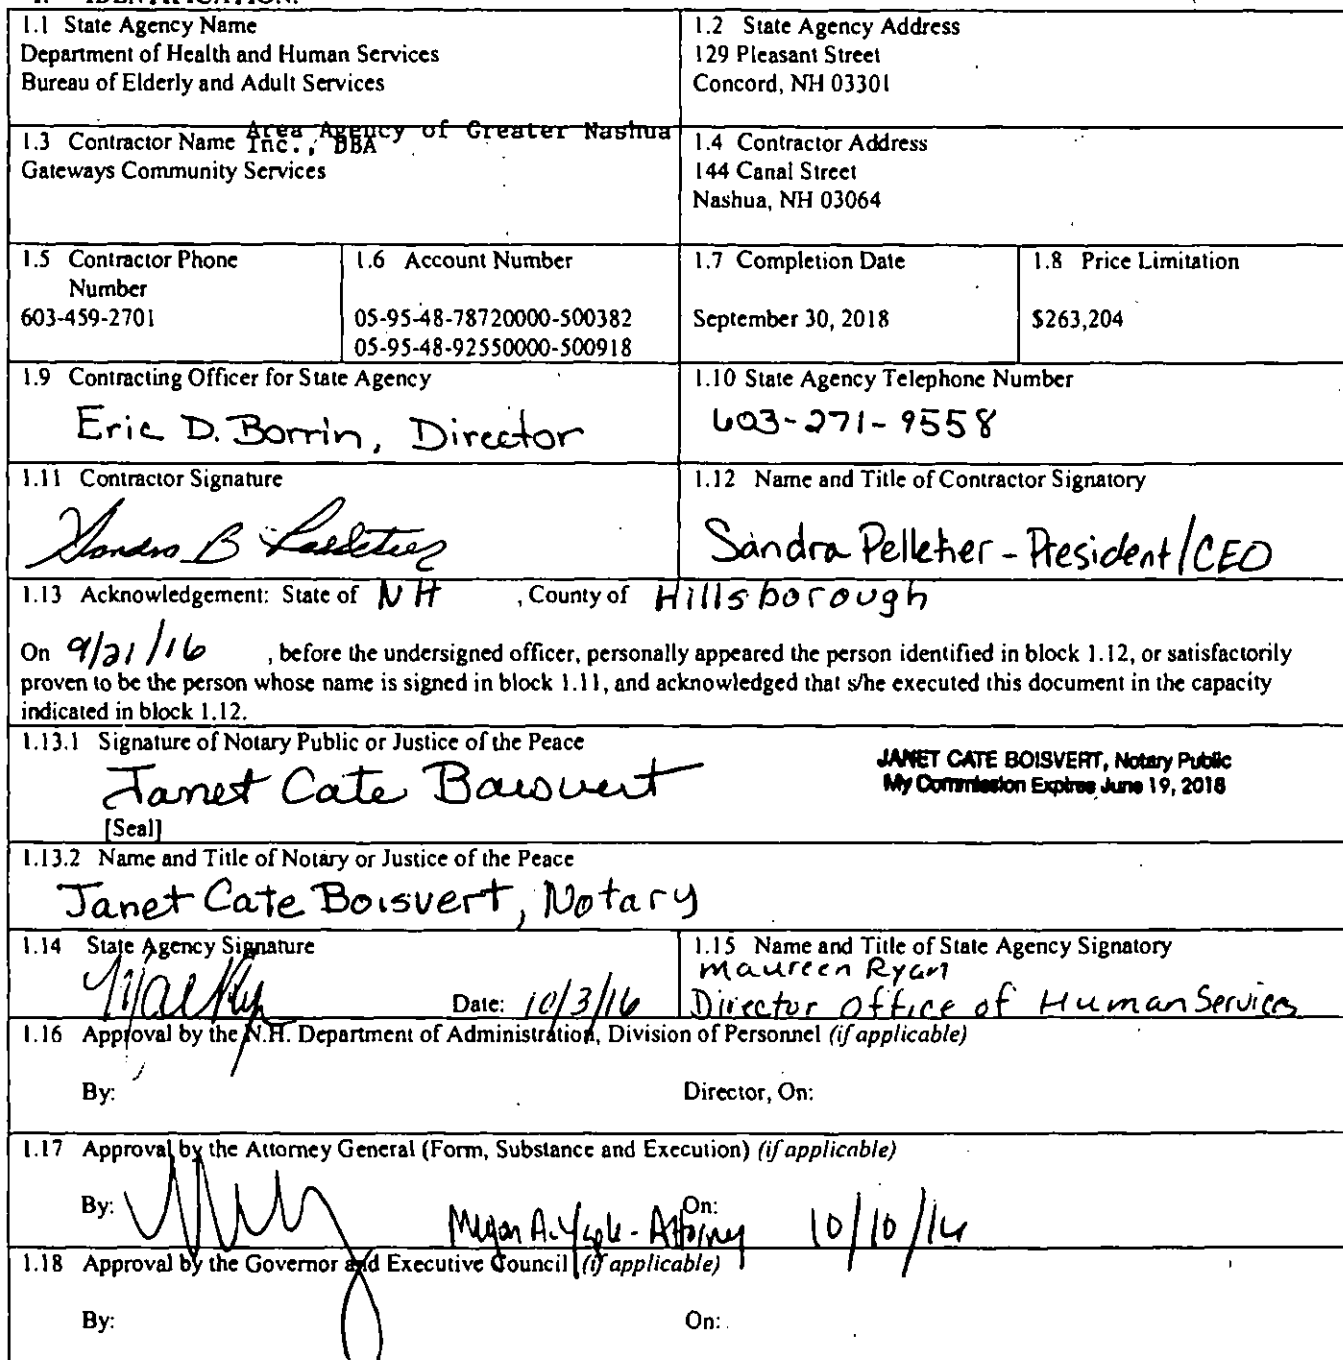 1.1 State Agency Name
Department of Health and Human Services
Bureau of Elderly and Adult Services
1.2 State Agency Address
129 Pleasant Street
Concord, NH 03301
1.3 Contractor Name Area Agency of Greater Nashua
Inc., DBA
Gateways Community Services
1.4 Contractor Address
144 Canal Street
Nashua, NH 03064
1.5 Contractor Phone
Number
603-459-2701
1.6 Account Number
05-95-48-78720000-500382
05-95-48-92550000-500918
1.7 Completion Date
September 30, 2018
1.8 Price Limitation
$263,204
1.9 Contracting Officer for State Agency
Eric D. Borrin, Director
1.10 State Agency Telephone Number
603-271-9558
1.11 Contractor Signature
Sandra B Pelletier
1.12 Name and Title of Contractor Signatory
Sandra Pelletier - President/CEO
1.13 Acknowledgement: State of NH , County of Hillsborough
On 9/21/16 , before the undersigned officer, personally appeared the person identified in block 1.12, or satisfactorily
proven to be the person whose name is signed in block 1.11, and acknowledged that s/he executed this document in the capacity
indicated in block 1.12.
1.13.1 Signature of Notary Public or Justice of the Peace
Janet Cate Boisvert
JANET CATE BOISVERT, Notary Public
My Commission Expires June 19, 2018
[Seal]
1.13.2 Name and Title of Notary or Justice of the Peace
Janet Cate Boisvert, Notary
1.14 State Agency Signature
Date: 10/3/16
1.15 Name and Title of State Agency Signatory
Maureen Ryan
Director Office of Human Services
1.16 Approval by the N.H. Department of Administration, Division of Personnel (if applicable)
By: Director, On:
1.17 Approval by the Attorney General (Form, Substance and Execution) (if applicable)
By: Megan A. - Attorney On: 10/10/16
1.18 Approval by the Governor and Executive Council (if applicable)
By: On: